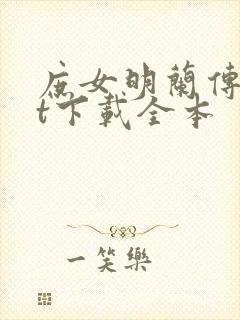 庶女明蘭傳
t下載全本
一笑樂